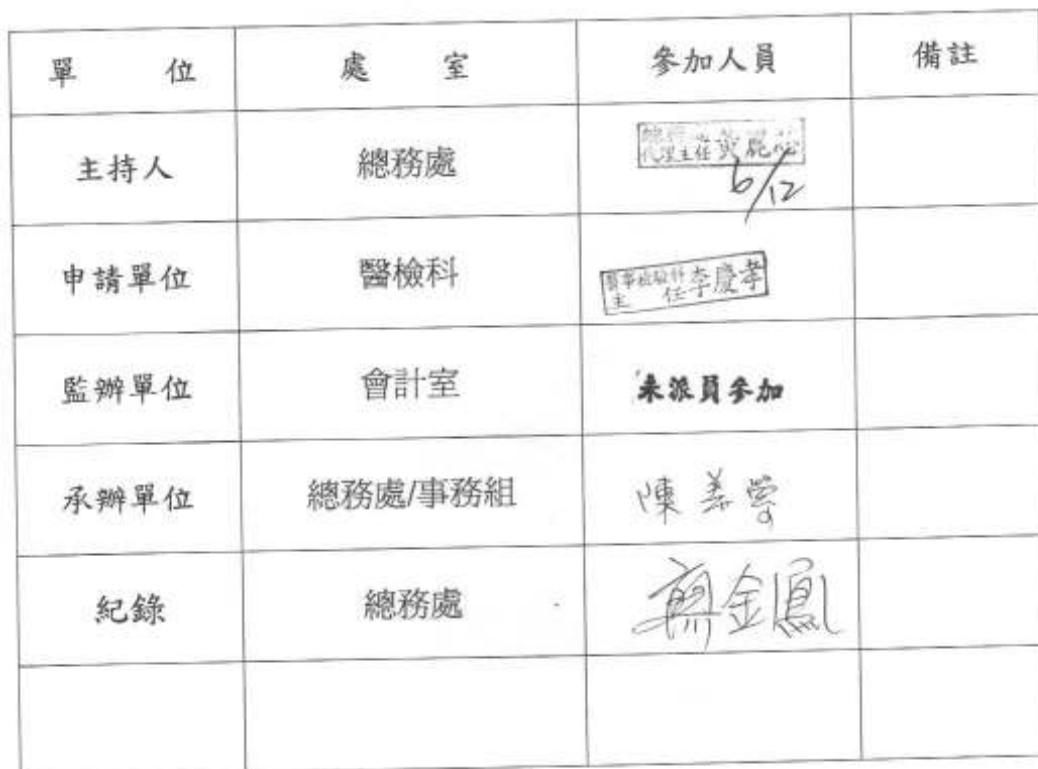 單 位 處 室 參加人員 備註
主持人 總務處 代理主任 黃
6/12
申請單位 醫檢科 醫事檢驗科
主 任 李慶孝
監辦單位 會計室 未派員參加
承辦單位 總務處/事務組 陳美瑩
紀錄 總務處 金鳳